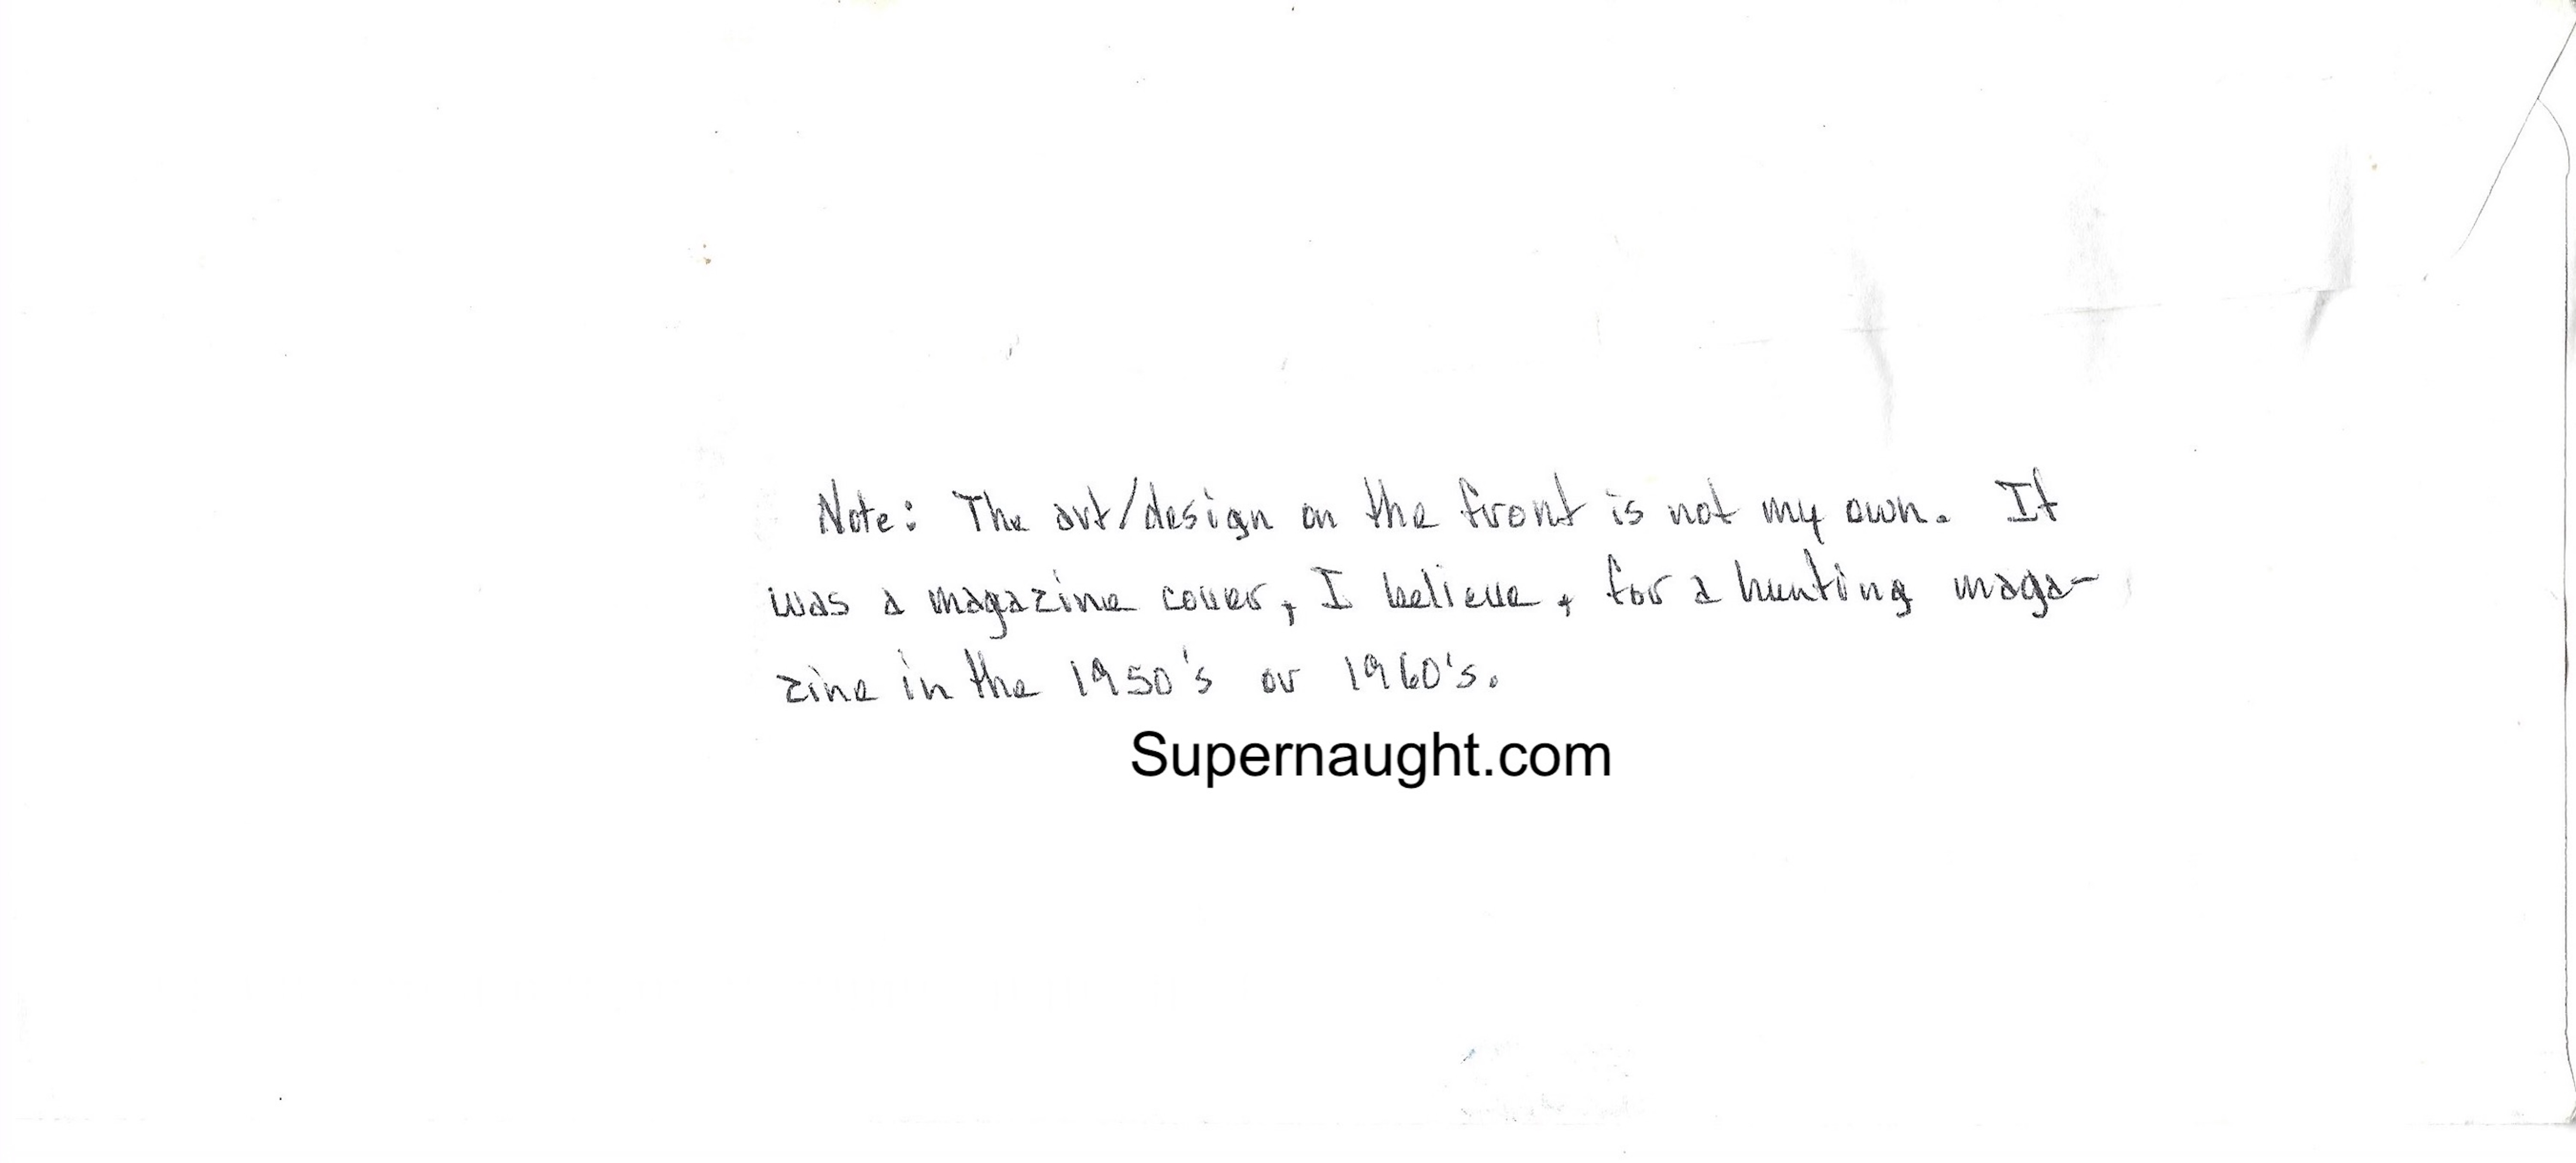 Note: The art/design on the front is not my own. It
was a magazine cover, I believe, for a hunting maga-
zine in the 1950's or 1960's.
Supernaught.com